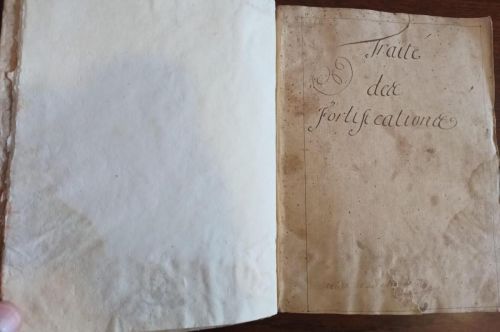 Traité
des
Fortifications